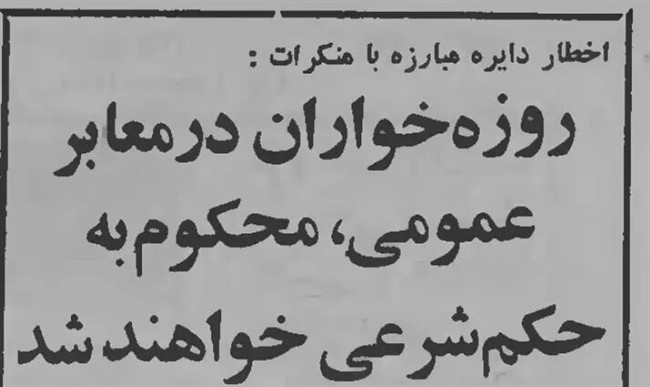 اخطار دایره مبارزه با منکرات :
روزه‌خواران درمعابر
عمومی، محکوم به
حکم شرعی خواهند شد